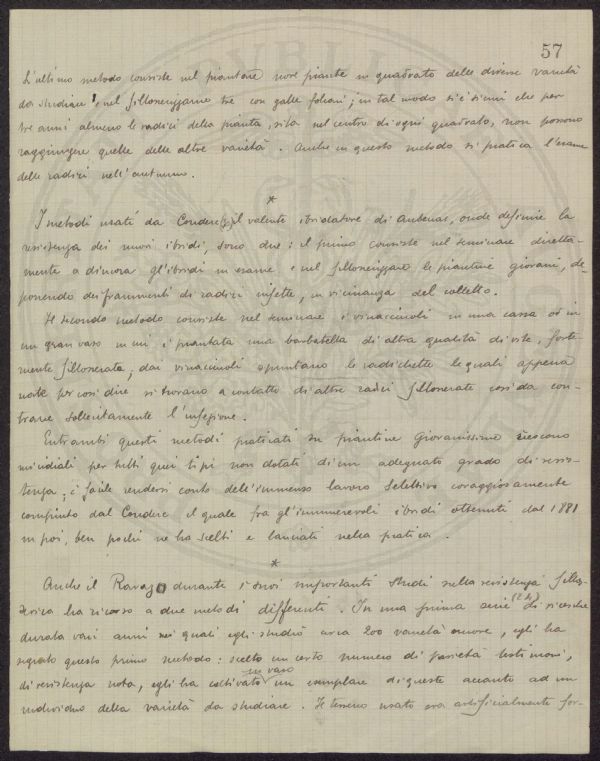 57
L'ultimo metodo consiste nel piantare nove piante in quadrato delle diverse varietà
da studiare, nel fillosserizzarne tre con galle foliari; in tal modo si è sicuri che per
tre anni almeno le radici della pianta, sita nel centro di ogni quadrato, non possono
raggiungere quelle delle altre varietà. Anche in questo metodo si pratica l'esame
delle radici nell'autunno.
*
I metodi usati da Couderc il valente ibridatore di Aubenas, onde definire la
resistenza dei nuovi ibridi, sono due: il primo consiste nel seminare diretta-
mente a dimora gl'ibridi in esame e nel fillosserizzare le piantine giovani, de-
ponendo dei frammenti di radici infette, in vicinanza del colletto.
Il secondo metodo consiste nel seminare i vinaccioli in una cassa od in
un gran vaso in cui è piantata una barbatella di altra qualità di vite, forte-
mente fillosserata; dai vinaccioli spuntano le radichette le quali appena
nate per così dire si trovano a contatto di altre radici fillosserate così da con-
trarre sollecitamente l'infezione.
Entrambi questi metodi praticati su piantine giovanissime riescono
micidiali per tutti quei tipi non dotati di un adeguato grado di resis-
tenza; è facile rendersi conto dell'immenso lavoro selettivo coraggiosamente
compiuto dal Couderc il quale fra gl'innumerevoli ibridi ottenuti dal 1881
in poi, ben pochi ne ha scelti e lanciati nella pratica.
*
Anche il Ravaz durante i suoi importanti studi sulla resistenza fillos-
serica ha ricorso a due metodi differenti. In una prima serie di ricerche
durata vari anni nei quali egli studiò circa 200 varietà nuove, egli ha
seguito questo primo metodo: scelto un certo numero di varietà testimoni,
di resistenza nota, egli ha coltivato in vaso un esemplare di queste accanto ad un
individuo della varietà da studiare. Il terreno usato era artificialmente for-